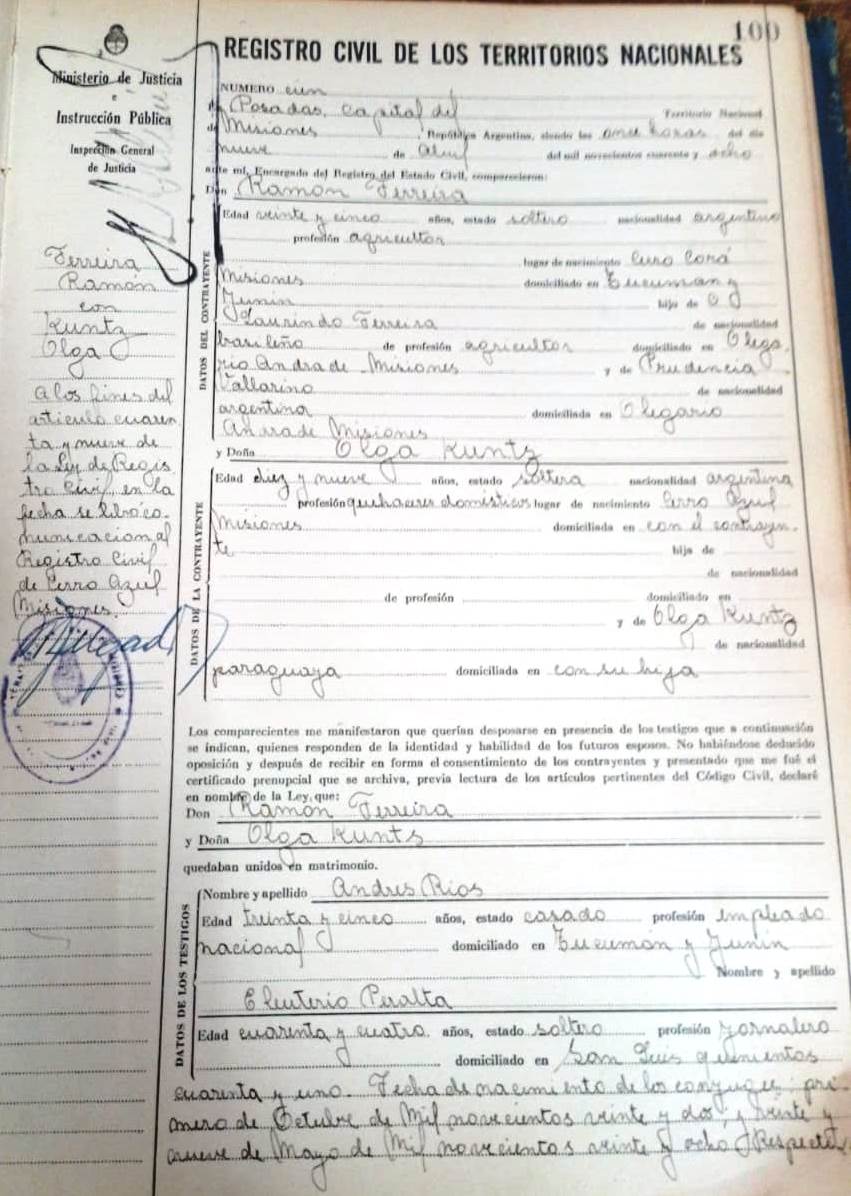 100
REGISTRO CIVIL DE LOS TERRITORIOS NACIONALES
Ministerio de Justicia
e
Instrucción Pública
Inspección General
de Justicia
Ferreira
Ramon
con
Kuntz
Olga
a los fines del
articulo cuaren
ta y nueve de
la Ley de Regis
tro Civil, en la
fecha se libró co-
municacion al
Registro Civil
de Cerro Azul
Misiones.
NUMERO cien
En Posadas, Capital del Territorio Nacional
de Misiones, República Argentina, siendo las once horas del día
nueve de abril del mil novecientos cuarenta y ocho
ante mí, Encargado del Registro del Estado Civil, comparecieron:
Don Ramon Ferreira
DATOS DEL CONTRAYENTE
Edad veinte y cinco años, estado soltero nacionalidad argentino
profesión agricultor
lugar de nacimiento Cerro Corá
Misiones domiciliado en Tucuman y
Junin hijo de
Laurindo Ferreira de nacionalidad
brasileño de profesión agricultor domiciliado en Olega
rio Andrade Misiones y de Prudencia
Vallarino de nacionalidad
argentina domiciliada en Olegario
Andrade Misiones
y Doña Olga Kuntz
DATOS DE LA CONTRAYENTE
Edad diez y nueve años, estado soltera nacionalidad argentina
profesión quehaceres domésticos lugar de nacimiento Cerro Azul
Misiones domiciliada en con el contrayen-
te hija de
de nacionalidad
de profesión domiciliado en
y de Olga Kuntz
de nacionalidad
paraguaya domiciliada en con su hija
Los comparecientes me manifestaron que querían desposarse en presencia de los testigos que a continuación
se indican, quienes responden de la identidad y habilidad de los futuros esposos. No habiéndose deducido
oposición y después de recibir en forma el consentimiento de los contrayentes y presentado que me fué el
certificado prenupcial que se archiva, previa lectura de los artículos pertinentes del Código Civil, declaré
en nombre de la Ley, que:
Don Ramon Ferreira
y Doña Olga Kunts
quedaban unidos en matrimonio.
DATOS DE LOS TESTIGOS
Nombre y apellido Andres Rios
Edad treinta y cinco años, estado casado profesión empleado
nacional domiciliado en Tucumán y Junin
Nombre y apellido
Eleuterio Peralta
Edad cuarenta y cuatro años, estado soltero profesión jornalero
domiciliado en San Luis quinientos
cuarenta y uno. Fecha de nacimiento de los conyuges: pri-
mero de Octubre de Mil novecientos veinte y dos, y veinte y
nueve de Mayo de Mil novecientos veinte y ocho Respectiv.